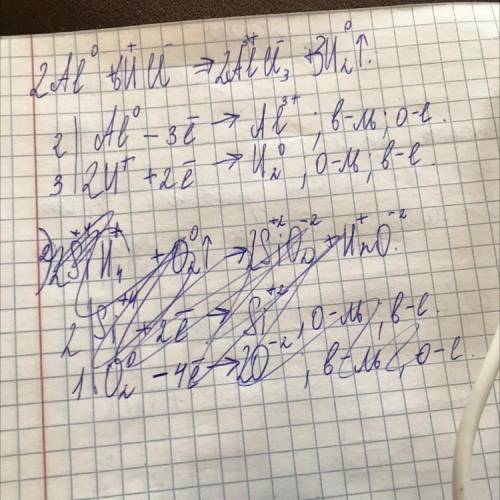 2Al⁰ + 6H⁺Cl⁻ → 2Al³⁺Cl₃⁻ + 3H₂⁰↑.
2 | Al⁰ - 3ē → Al³⁺; в-ль; о-е.
3 | 2H⁺ + 2ē → H₂⁰, о-ль; в-е.
2) H₄ + O₂⁰↑ → 2Si⁺²O₂⁻² + H⁺₂O⁻².
2 Si⁺⁴ + 2ē → Si⁺², о-ль; в-е.
1 | O₂⁰ - 4ē → 2O⁻², в-ль, о-е.